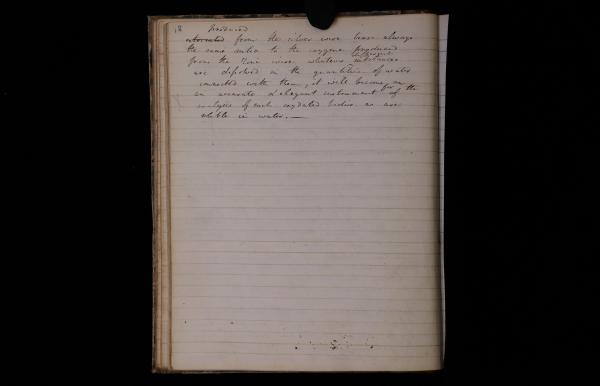 18 produced
from the silver wire bears always
the same ratio to the oxygene produced
from the Zinc wire whatever different substances
are dissolved in the quantities of water
connected with them, it will become
an accurate & elegant instrument for the
analysis of such oxydated bodies as are
soluble in water. —